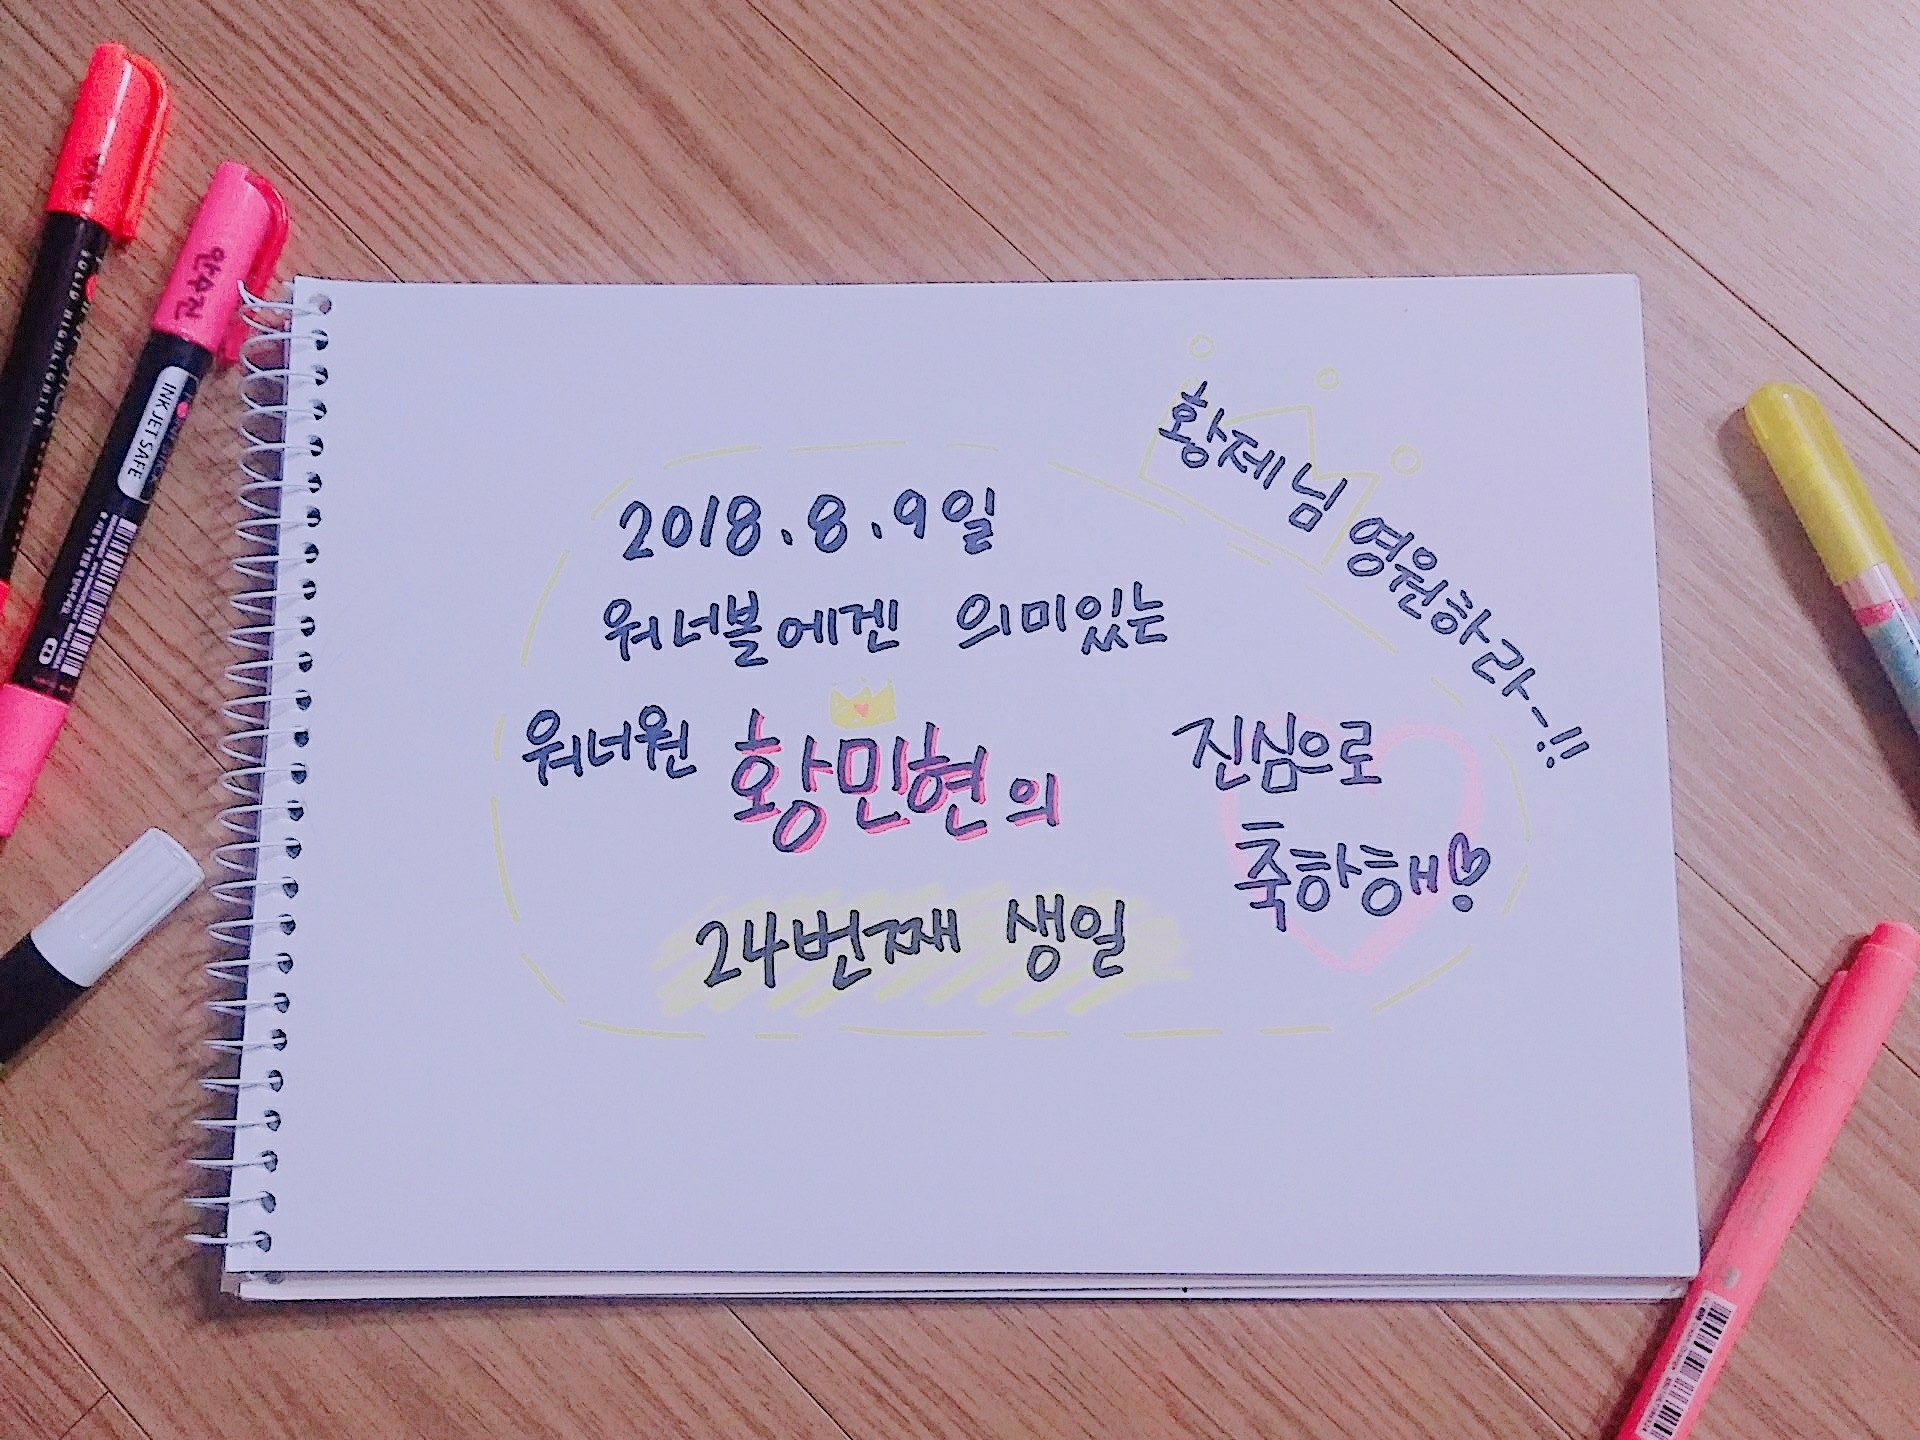 황제님 영원하라~!!
2018.8.9일
워너블에겐 의미있는
워너원 황민현의
24번째 생일
진심으로
축하해!
INK JET SAFE